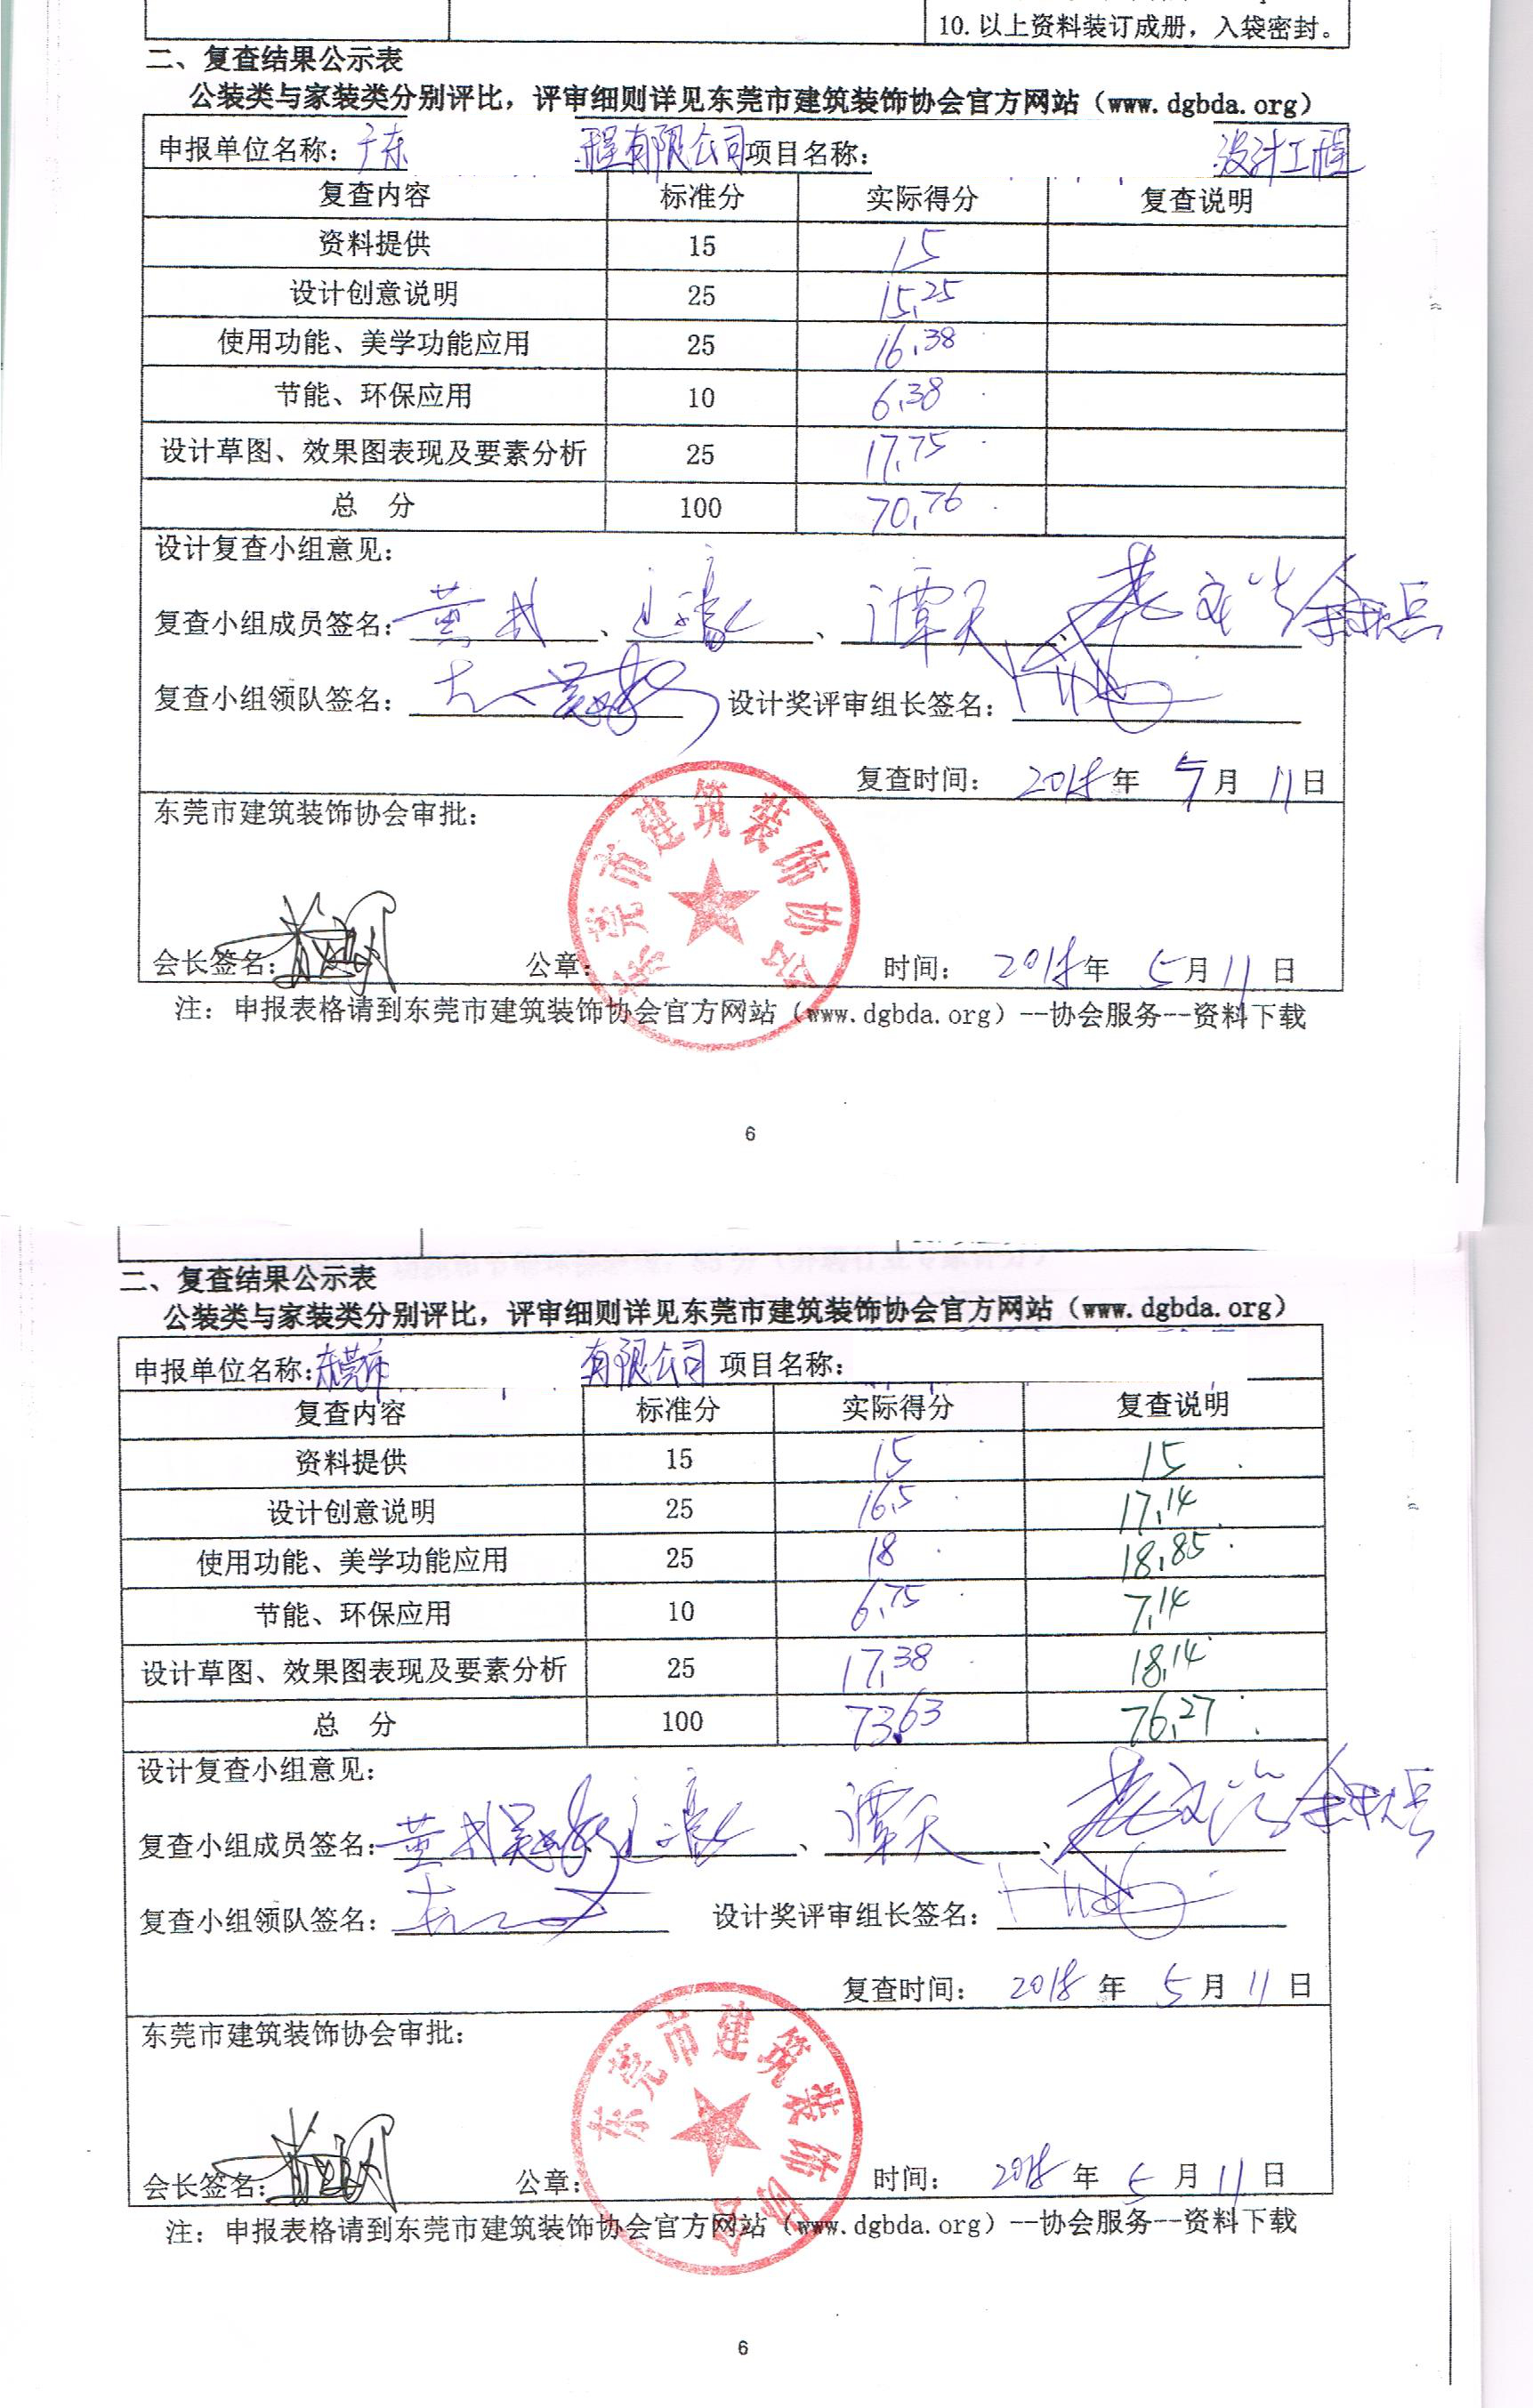 10. 以上资料装订成册，入袋密封。
二、复查结果公示表
公装类与家装类分别评比，评审细则详见东莞市建筑装饰协会官方网站（www.dgbda.org）
申报单位名称：广东 程有限公司 项目名称： 设计工程
复查内容 标准分 实际得分 复查说明
资料提供 15 15
设计创意说明 25 15.25
使用功能、美学功能应用 25 16.38
节能、环保应用 10 6.38
设计草图、效果图表现及要素分析 25 17.75
总 分 100 70.76
设计复查小组意见：
复查小组成员签名： 、 、谭天、
复查小组领队签名： 设计奖评审组长签名：
复查时间： 2018年 5月 11日
东莞市建筑装饰协会审批：
东莞市建筑装饰协会
会长签名： 公章： 时间： 2018年 5月11日
注：申报表格请到东莞市建筑装饰协会官方网站（www.dgbda.org）--协会服务--资料下载
6
二、复查结果公示表
公装类与家装类分别评比，评审细则详见东莞市建筑装饰协会官方网站（www.dgbda.org）
申报单位名称：东莞市 有限公司 项目名称：
复查内容 标准分 实际得分 复查说明
资料提供 15 15 15
设计创意说明 25 16.5 17.14
使用功能、美学功能应用 25 18 18.85
节能、环保应用 10 6.75 7.14
设计草图、效果图表现及要素分析 25 17.38 18.14
总 分 100 73.63 76.27
设计复查小组意见：
复查小组成员签名： 、谭天、
复查小组领队签名： 设计奖评审组长签名：
复查时间： 2018年 5月 11日
东莞市建筑装饰协会审批：
东莞市建筑装饰协会
会长签名： 公章： 时间： 2018年 5月11日
注：申报表格请到东莞市建筑装饰协会官方网站（www.dgbda.org）--协会服务--资料下载
6